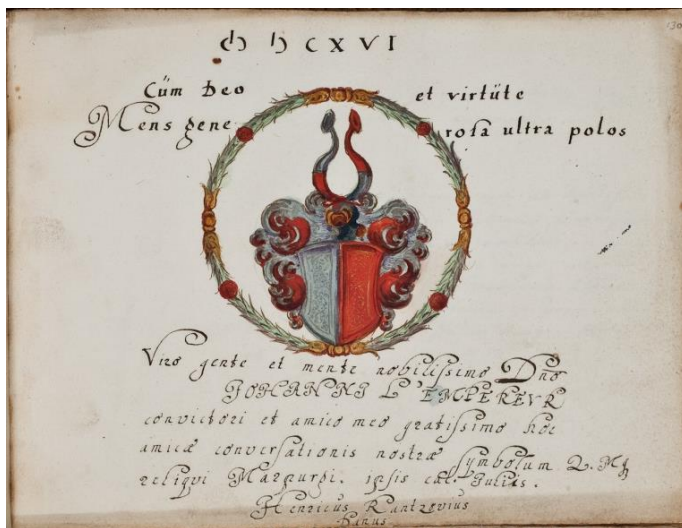 M D C X V I
Cùm Deo et virtùte
Mens gene rosa ultra polos
Viro gente et mente nobilissimo Dño
JOHANNI L'EMPEREVR
convictori et amico meo gratissimo hoc
amicæ conversationis nostræ symbolum
reliqui Marpurgi. ipsis cal. Julii
Henricus Rantzovius
Danus.
130